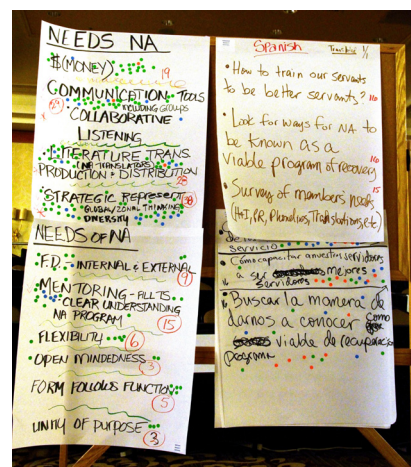 NEEDS NA
$(MONEY)
19
COMMUNICATION TOOLS
INCLUDING GROUPS
COLLABORATIVE
LISTENING
LITERATURE TRANS.
(NA TRANSLATORS)
PRODUCTION & DISTRIBUTION
28
STRATEGIC REPRESENT
GLOBAL/ZONAL THINKING
DIVERSITY
NEEDS OF NA
F.D. - INTERNAL & EXTERNAL
9
MENTORING - ALL TS
CLEAR UNDERSTANDING
NA PROGRAM
15
FLEXIBILITY
6
OPEN MINDEDNESS
3
FORM FOLLOWS FUNCTION
5
UNITY OF PURPOSE
3
Spanish
• How to train our servants
to be better servants?
• Look for ways for NA to
be known as a
viable program of recovery
16
• Survey of members needs
15
(H&I, PR, Phonelines, Translations, etc)
servicio
• Cómo capacitar a nuestros servidores
a ser mejores
servidores
• Buscar la manera de
darnos a conocer como
viable de recuperacion
programa